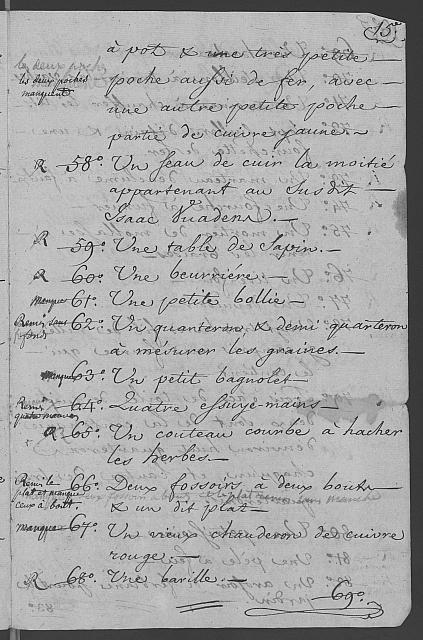 15.e
à pot & une très petite
les deux poches
manquent
poche aussi de fer, avec
une autre petite poche
partie de cuivre jaune.
R 58.° Un seau de cuir la moitié
appartenant au susdit
Isaac Vuadens.
R 59.° Une table de Sapin.
R 60.° Une beurriére.
manque 61.° Une petite bollie
Remis sans 62.° Un quarteron & demi quarteron
fonds
à mésurer les graines.
manque 63.° Un petit bagnolet
Remis 64.° Quatre essuye-mains
R 65.° Un couteau courbe à hacher
les herbes.
Remis le 66.° Deux fossoirs à deux bouts
plat et manque
ceux à bout.
& un dit plat
manque 67.° Un vieux chauderon de cuivre
rouge.
R 68.° Une barille.
69.°